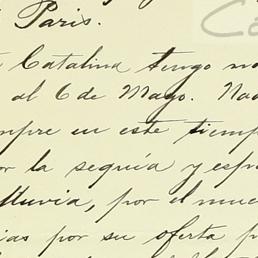 Paris.
Catalina tengo no
al 6 de Mayo. Nad
mpre en este tiemp
or la sequía y esp
lluvia, por el muc
ias por su oferta p